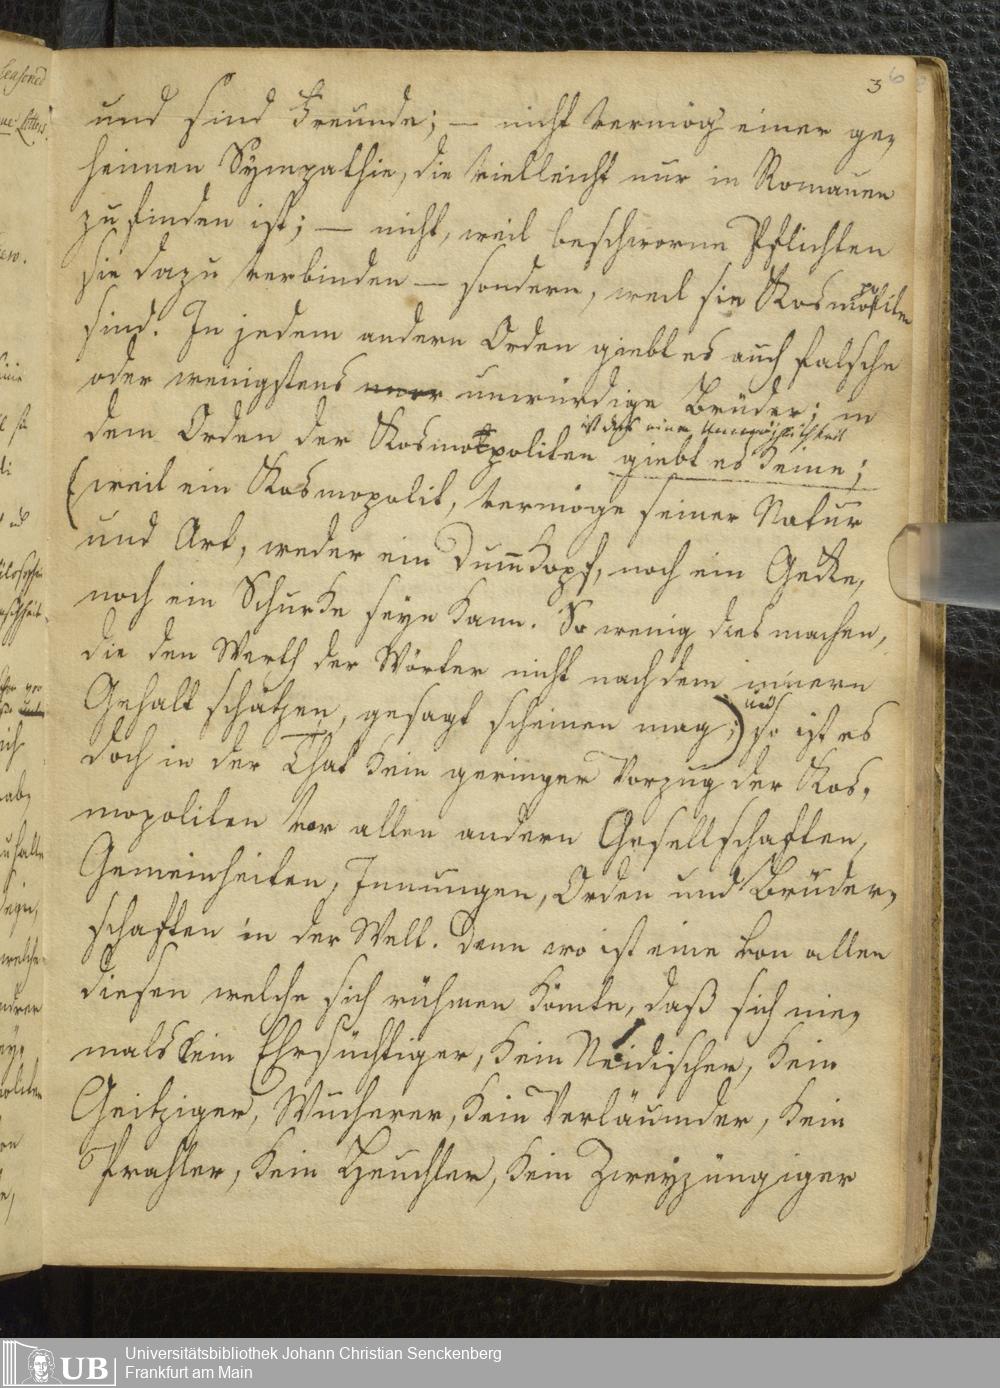 3 6
und sind Freunde; — nicht vermög einer ge-
heimen Sympathie, die vielleicht nur in Romanen
zu finden ist; — nicht, weil beschworne Pflichten
sie dazu verbinden — sondern, weil sie Kosmopoliten
sind. In jedem andern Orden giebt es auch falsche
oder wenigstens unwürdige Brüder; in
ist dies eine Unmöglichkeit
dem Orden der Kosmopoliten giebt es keine;
(weil ein Kosmopolit, vermöge seiner Natur
und Art, weder ein Dummkopf, noch ein Gecke,
noch ein Schurke seyn kann. So wenig dies machen,
die den Werth der Wörter nicht nach dem innern
Gehalt schätzen, gesagt scheinen mag;) und so ist es
doch in der That kein geringer Vorzug der Kos-
mopoliten vor allen andern Gesellschaften,
Gemeinheiten, Innungen, Orden und Brüder-
schaften in der Welt. Denn wo ist eine von allen
diesen welche sich rühmen könnte, daß sich nie-
mals kein Ehrsüchtiger, kein Neidischer, kein
Geitziger, Wucherer, kein Verläumder, kein
Prahler, kein Heuchler, kein Zweyzüngiger
Universitätsbibliothek Johann Christian Senckenberg
Frankfurt am Main
UB